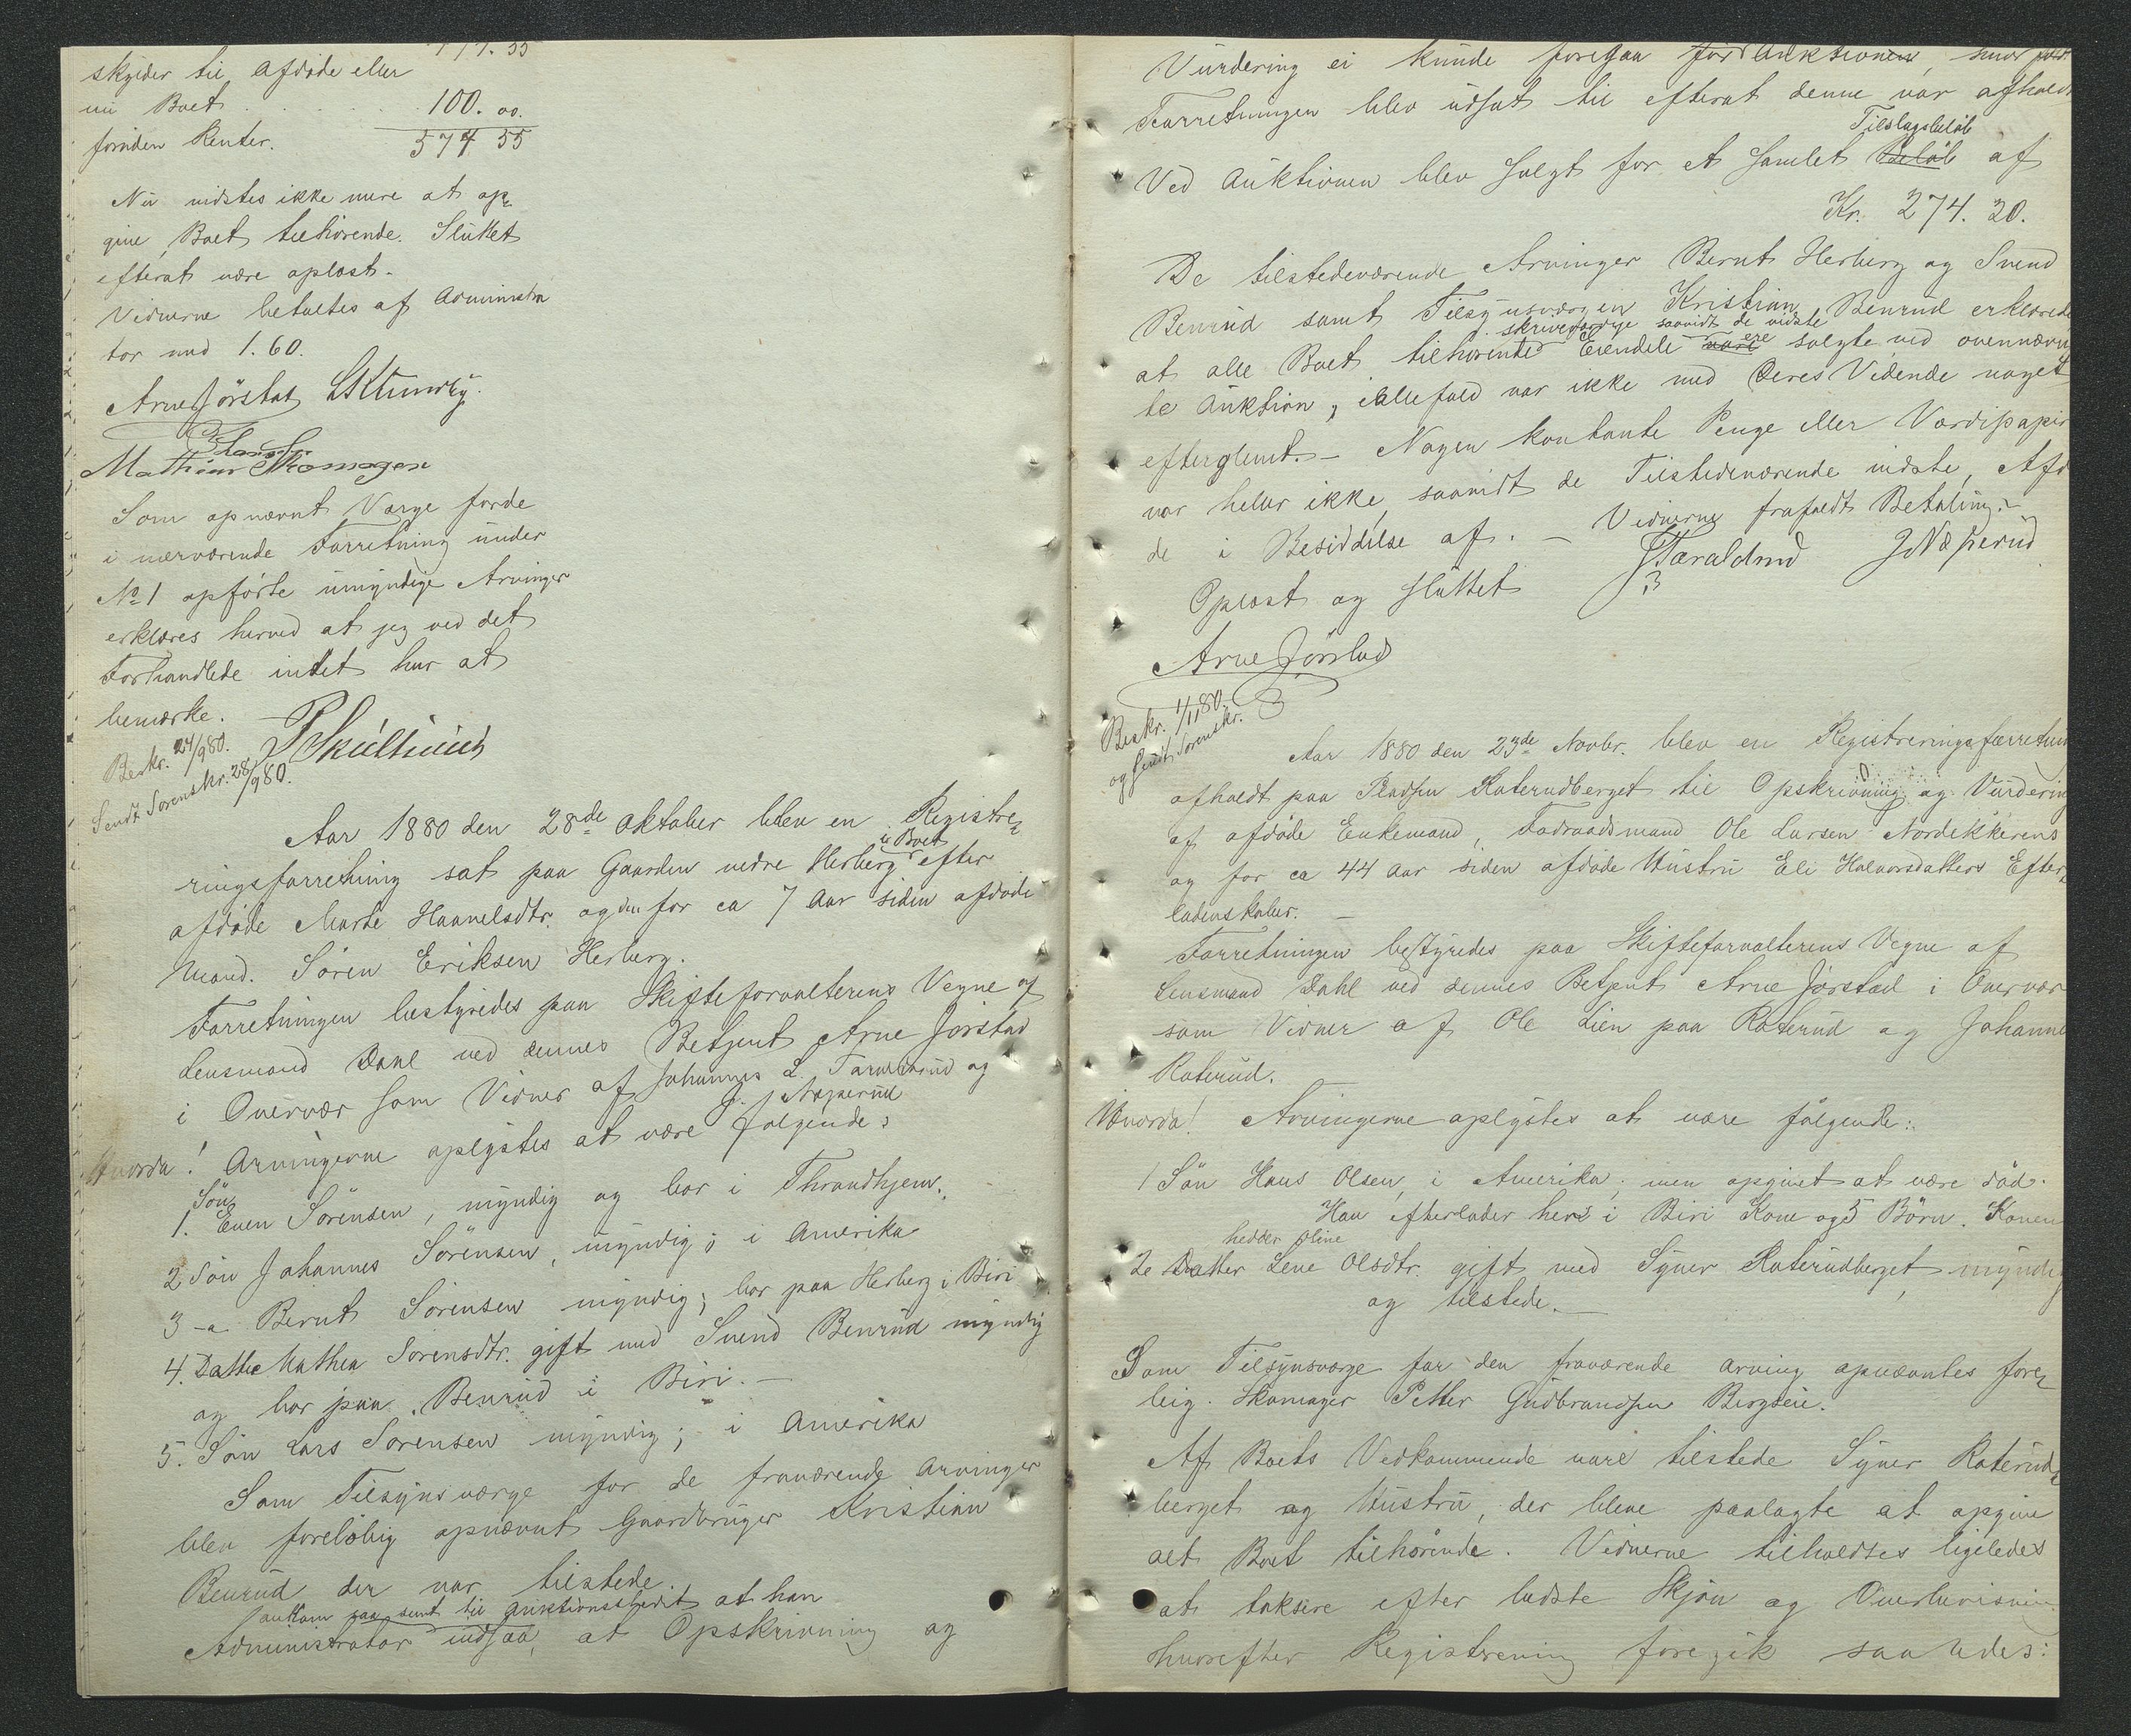 skylder til Afdøde eller
nu Boet . . . . . . . 100. oo.
foruden Renter. 574 55
Nu vidstes ikke mere at op-
give Boet tilhørende. Sluttet
efterat være oplæst.
Vidnerne betaltes af Administra
tor med 1.60.
Arne Jørstad
Som opnævnt Værge for de
i nærværende Forretning under
No 1 opførte umyndige Arvinger
erklæres herved at jeg ved det
Forhandlede intet har at
bemærke.
Beskr. 24/9 80.
Sendt Sorenskr. 28/9 80.
Aar 1880 den 28de Oktober blev en Registre-
ringsforretning sat paa Gaarden nedre Herberg i Boet efter
afdøde Marte Haavelsdtr. og den for ca 7 Aar siden afdøde
Mand. Søren Eriksen Herberg.
Forretningen bestyredes paa Skifteforvalterens Vegne af
Lensmand Dahl ved dennes Betjent Arne Jørstad
i Overvær som Vidner af Johannes L. Taraldrud og
J. Næperud
Hvorda! Arvingerne oplystes at være følgende:
1. Søn Even Sørensen, myndig og bor i Throndhjem.
2 Søn Johannes Sørensen, myndig; i Amerika
3 - a Bernt Sørensen myndig; bor paa Herberg i Biri
4. Datter Mathea Sørensdtr. gift med Svend Benrud myndig
og bor paa Benrud i Biri. —
5. Søn Lars Sørensen myndig; i Amerika
Som Tilsynsværge for de fraværende Arvinger
blev foreløbig opnævnt Gaardbruger Kristian
Benrud der var tilstede.
ankom saa sent til Auktionsstedet at han
Administrator indsaa, at Opskrivning og
Vurdering ei kunde foregaa før Auktionen, hvor
Forretningen blev udsat til efterat denne var afholdt
Ved Auktionen blev solgt for et samlet Beløb Tilslagsbeløb af
Kr. 274. 20.
De tilstedeværende Arvinger Bernt Herberg og Svend
Benrud samt Tilsynsværgen Kristian Benrud erklærede
skrivefærdige saavidt de vidste
at alle Boet tilhørende Eiendele vare ere solgte ved ovennævn
te Auktion, ialfald var ikke med deres Vidende noget
efterglemt. — Nogen kontante Penge eller Værdipapir
var heller ikke, saavidt de Tilstedeværende vidste, Afd
de i Besiddelse af. — Vidnerne frafaldt Betaling. —
Oplæst og sluttet
J Taraldrud J Næperud
Arne Jørstad
Beskr. 1/11 80.
og sendt Sorenskr.
Aar 1880 den 23de Novbr. blev en Registreringsforretnin
afholdt paa Pladsen Raterudberget til Opskrivning og Vurdering
af afdøde Enkemand, Føderaadsmand Ole Larsen Nordekkerens
og for ca 44 Aar siden afdøde Hustru Eli Halvorsdatters Efter-
ladenskaber. —
Forretningen bestyredes paa Skifteforvalterens Vegne af
Lensmand Dahl ved dennes Betjent Arne Jørstad i Overvær
som Vidner af Ole Lien paa Raterud og Johannes
Raterud.
Hvorda! Arvingerne oplystes at være følgende:
1 Søn Hans Olsen, i Amerika; men opgivet at være død.
Han efterlader her i Biri Kone og 5 Børn. Konen
hedder Oline
2e Datter Lene Olsdtr. gift med Syver Raterudberget, myndig
og tilstede. —
Som Tilsynsværge for den fraværende Arving opnævntes fore-
løbig. Skomager Petter Gudbrandsen Bergseie.
Af Boets Vedkommende vare tilstede Syver Raterud-
berget og Hustru, der bleve paalagte at opgive
alt Boet tilhørende. Vidnerne tilholdtes ligeledes
at taksere efter bedste Skjøn og Overbevisning
hvorefter Registrering foregik saaledes: